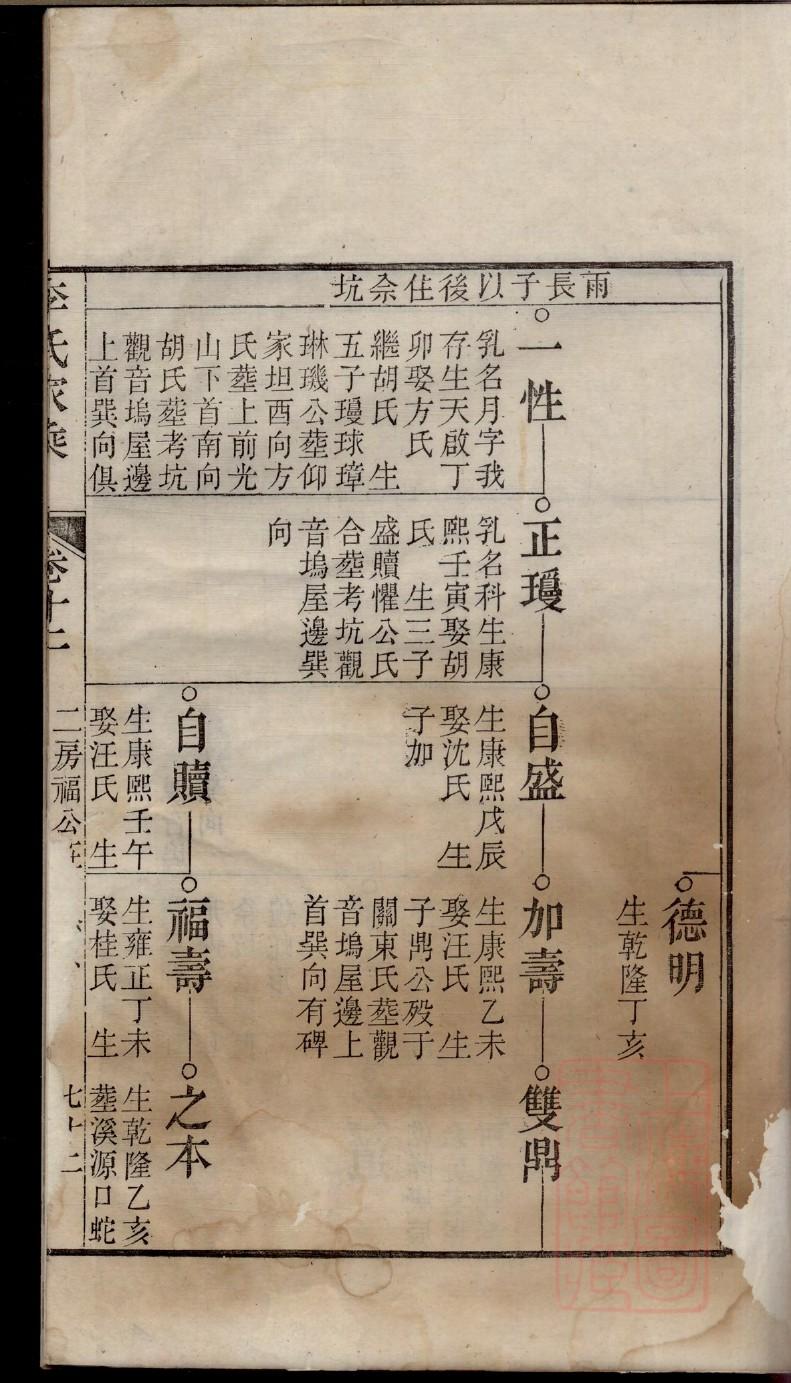 雨長子以後住佘坑
一性
乳名月字我
存生天啟丁
卯娶方氏
繼胡氏　生
五子㻴球璋
琳璣公塟仰
家坦西向方
氏塟上前光
山下首南向
胡氏塟考坑
觀音塢屋邊
上首巽向俱
正㻴
乳名科生康
熙壬寅娶胡
氏　生三子
盛贖懼公氏
合塟考坑觀
音塢屋邊巽
向
自盛
生康熙戊辰
娶沈氏　生
子加
自贖
生康熙壬午
娶汪氏　生
德明
生乾隆丁亥
加壽
生康熙乙未
娶汪氏　生
子鼎公歿于
關東氏塟觀
音塢屋邊上
首巽向有碑
福壽
生雍正丁未
娶桂氏　生
雙鼎
之本
生乾隆乙亥
塟溪源口蛇
李氏家乘
卷十二
二房福公
七十二